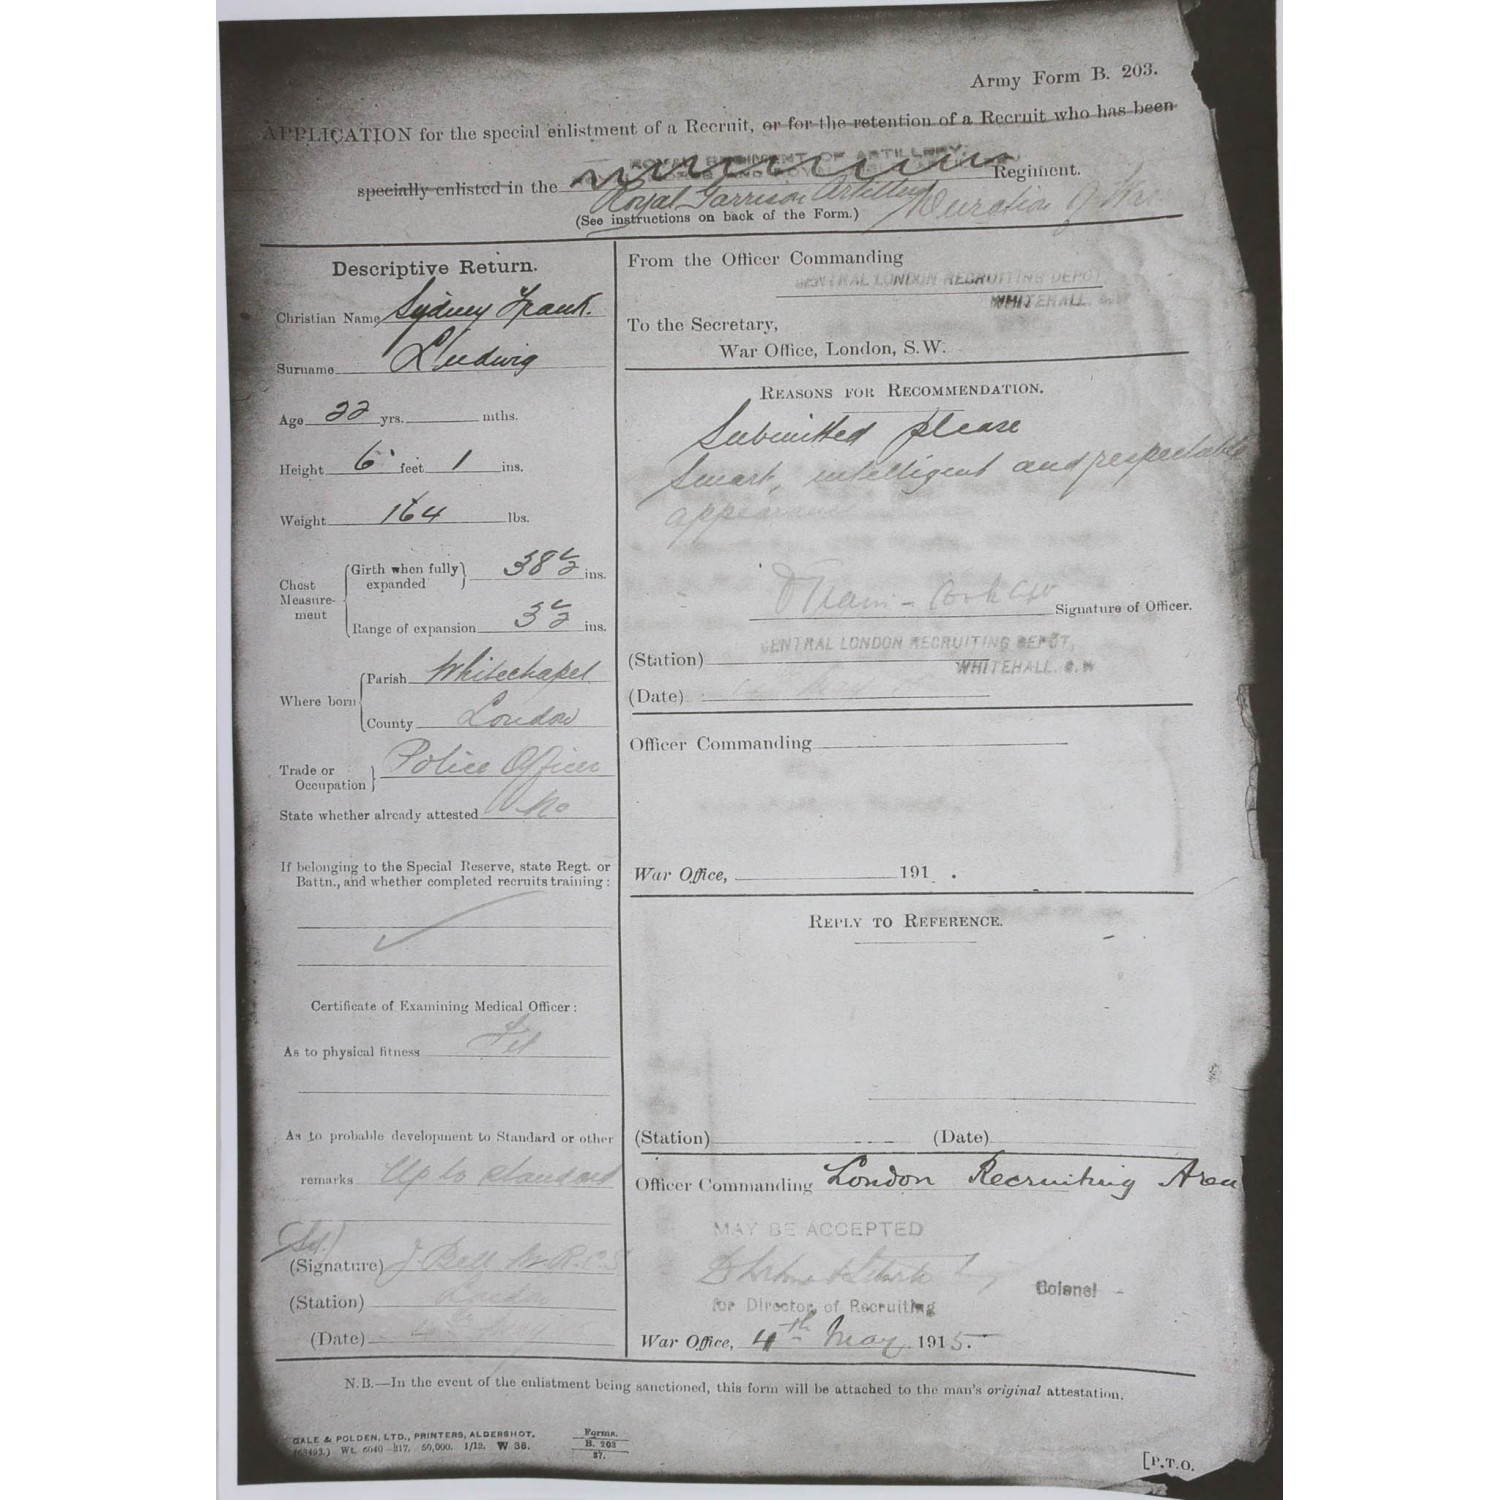 Army Form B. 203.
APPLICATION for the special enlistment of a Recruit, or for the retention of a Recruit who has been
specially enlisted in the ROYAL REGIMENT OF ARTILLERY. Regiment.
Royal Garrison Artillery Duration of War
(See instructions on back of the Form.)
Descriptive Return.
Christian Name Sydney Frank.
Surname Ludwig
Age 22 yrs. mths.
Height 6 feet 1 ins.
Weight 164 lbs.
Chest Measure-ment
Girth when fully expanded 38½ ins.
Range of expansion 3½ ins.
Where born
Parish Whitechapel
County London
Trade or Occupation Police Officer
State whether already attested No
If belonging to the Special Reserve, state Regt. or
Battn., and whether completed recruits training :
Certificate of Examining Medical Officer :
As to physical fitness Fit
As to probable development to Standard or other
remarks Up to standard
(Sd.)
(Signature) J. Bell M.R.C.S
(Station) London
(Date) 4th May
From the Officer Commanding
CENTRAL LONDON RECRUITING DEPOT
WHITEHALL. S.W
To the Secretary,
War Office, London, S.W.
REASONS FOR RECOMMENDATION.
Submitted please
Smart, intelligent and respectable
appearance
Signature of Officer.
CENTRAL LONDON RECRUITING DEPOT,
(Station) WHITEHALL. S.W
(Date) May
Officer Commanding
War Office, 191 .
REPLY TO REFERENCE.
(Station) (Date)
Officer Commanding London Recruiting Area
MAY BE ACCEPTED
Colonel
for Director of Recruiting
War Office, 4th May 1915.
N.B.—In the event of the enlistment being sanctioned, this form will be attached to the man's original attestation.
GALE & POLDEN, LTD., PRINTERS, ALDERSHOT.
Wt. 6040—317. 50,000. 1/12. W 36.
Forms.
B. 203
37.
[P.T.O.